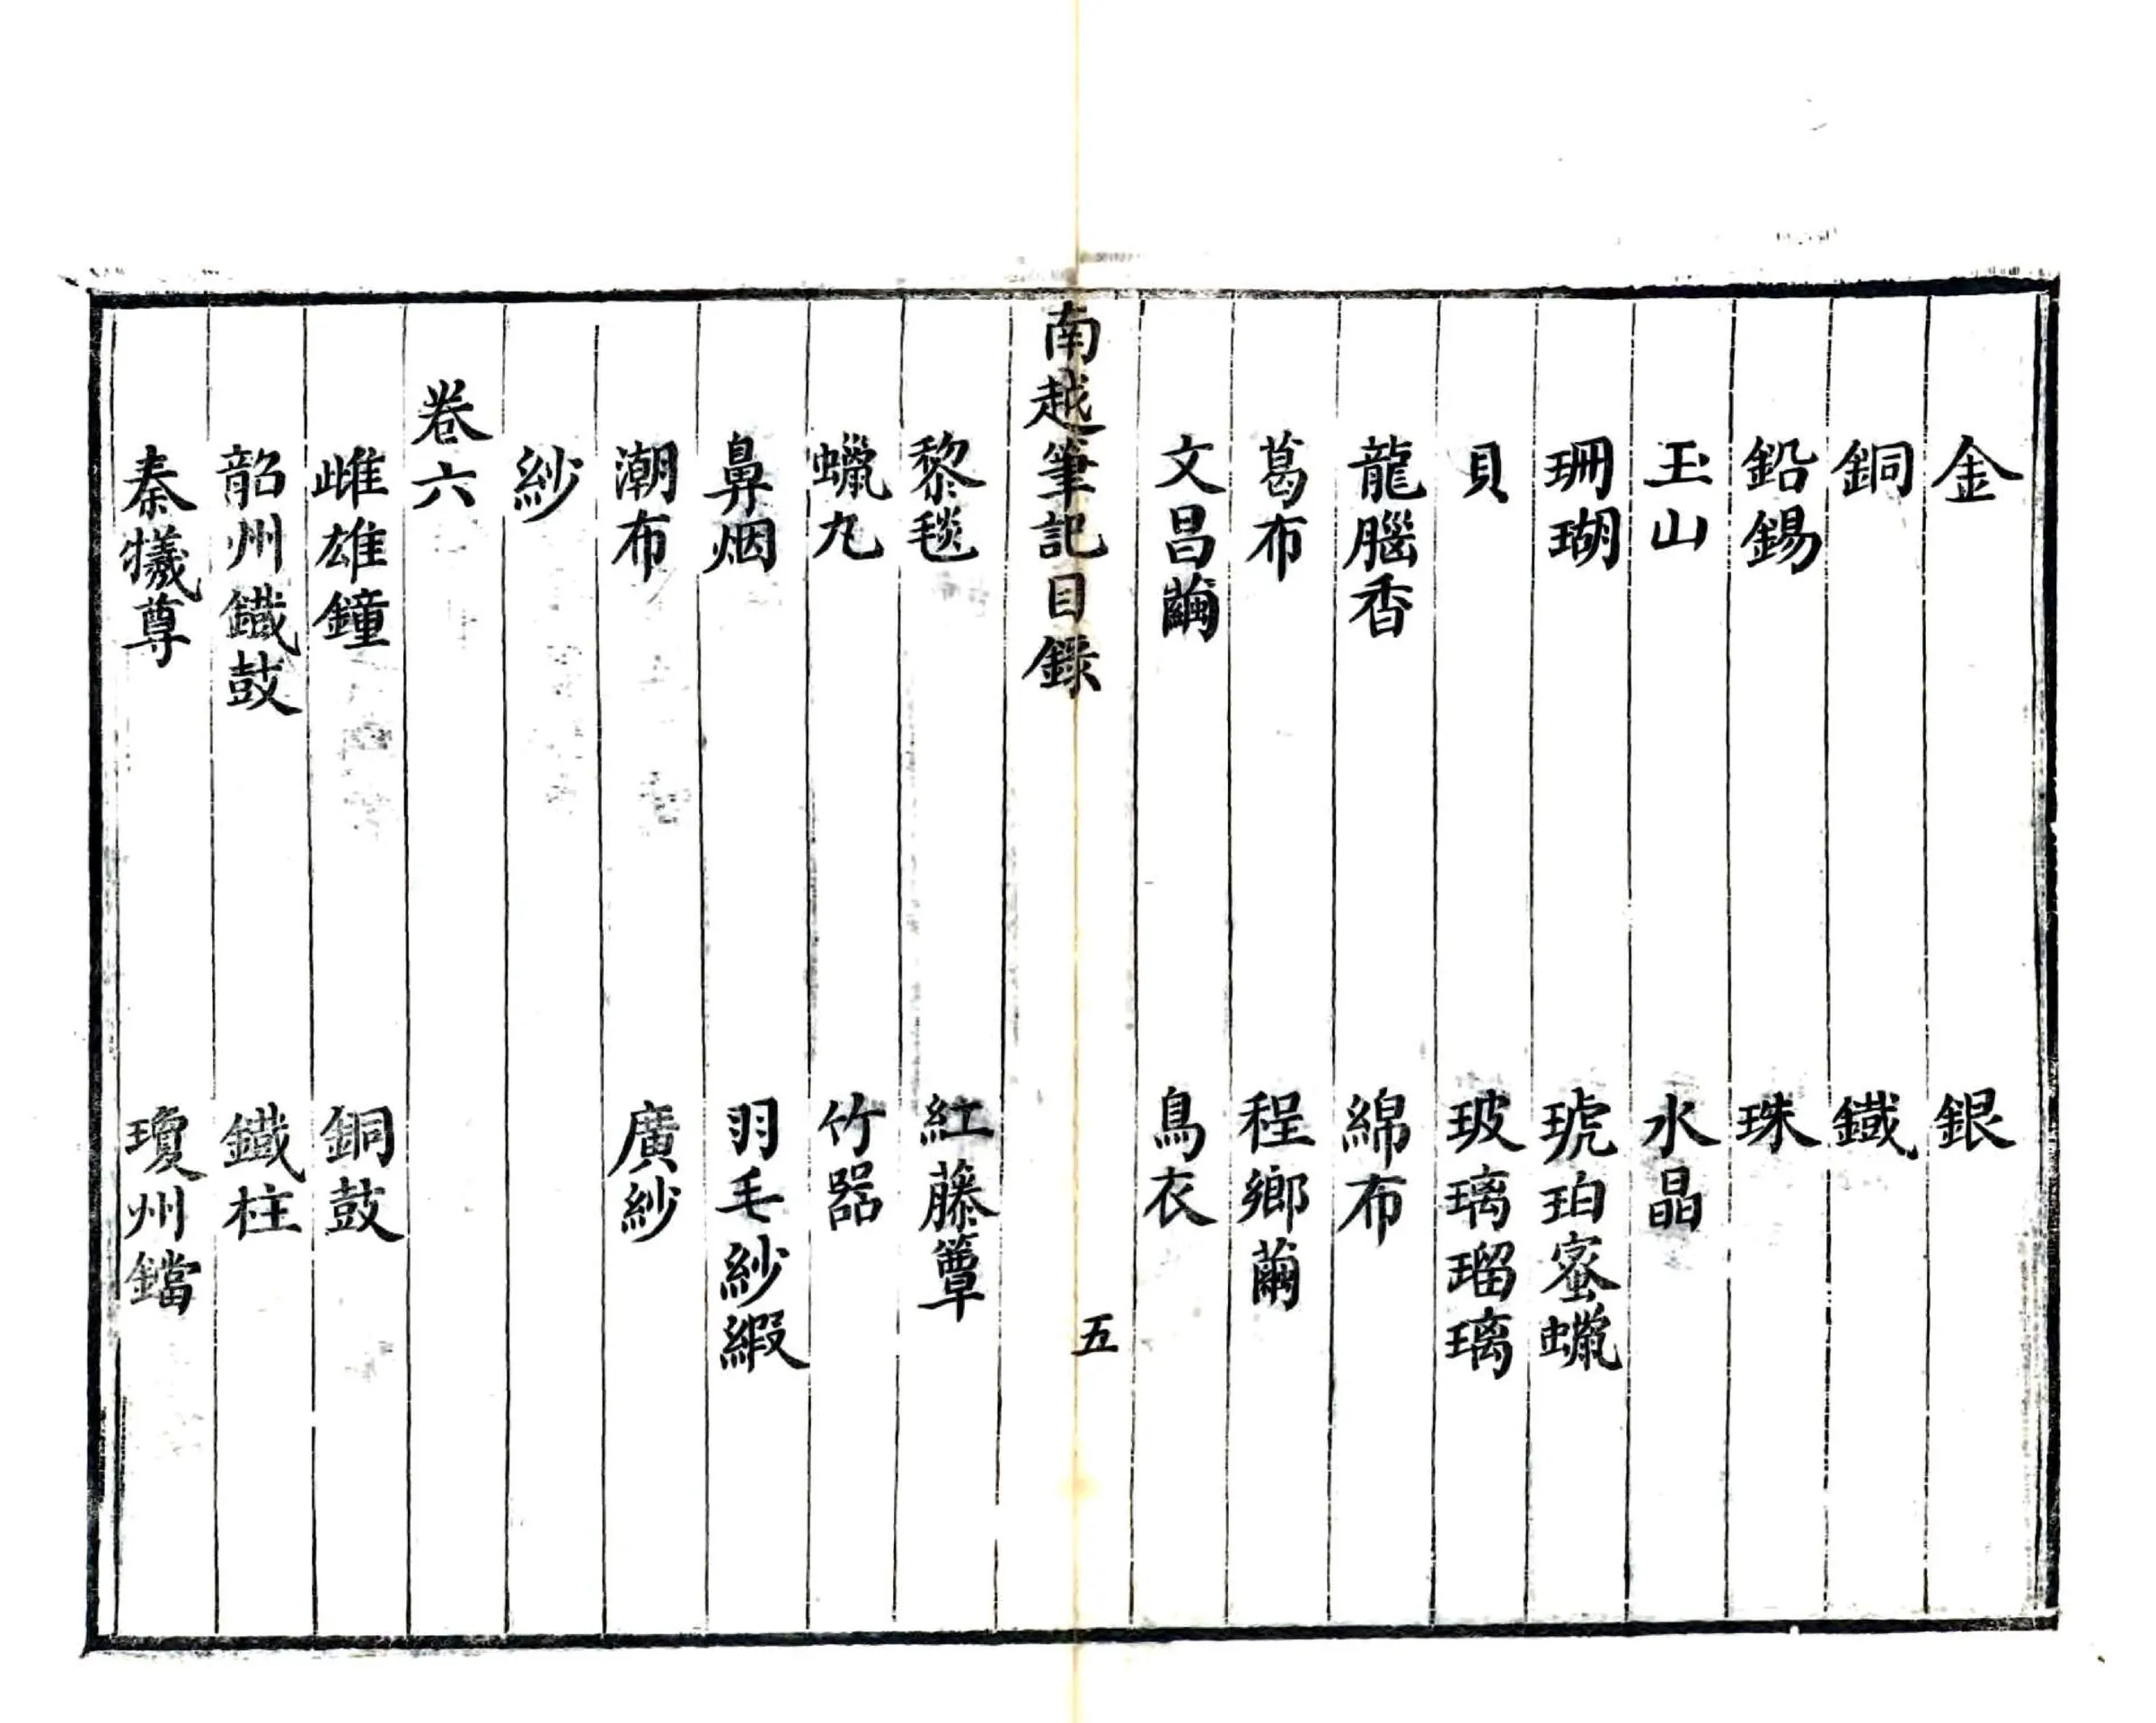 金　銀
銅　鐵
鉛錫　珠
玉山　水晶
珊瑚　琥珀蜜蠟
貝　玻璃瑠璃
龍腦香　綿布
葛布　程鄉繭
文昌繭　鳥衣
南越筆記目錄　五
黎毯　紅藤簟
蠟丸　竹器
鼻烟　羽毛紗緞
潮布　廣紗
紗
卷六
雌雄鐘　銅鼓
韶州鐵鼓　鐵柱
秦犧尊　瓊州鐺